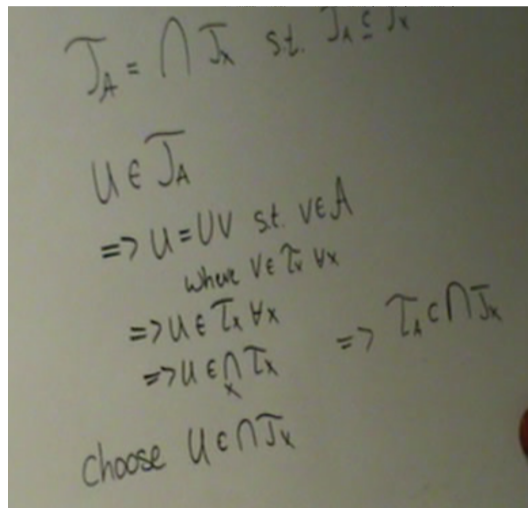 T_A = ∩ T_x s.t. T_A ⊆ T_x
U ∈ T_A
=> U = UV s.t. V ∈ A
where V ∈ T_x ∀x
=> U ∈ T_x ∀x
=> U ∈ ∩_x T_x => T_A ⊂ ∩ T_x
choose U ⊂ ∩ T_x